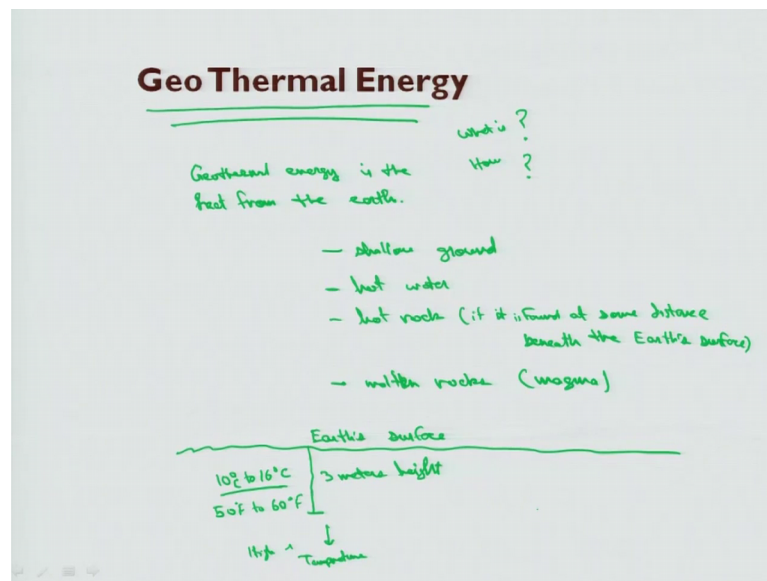 Geo Thermal Energy
What is ?
How ?
Geothermal energy is the
heat from the earth.
– shallow ground
– hot water
– hot rock (if it is found at some distance
beneath the Earth's surface)
– molten rocks (magma)
Earth's surface
10°C to 16°C
3 meters height
50°F to 60°F
High Temperature